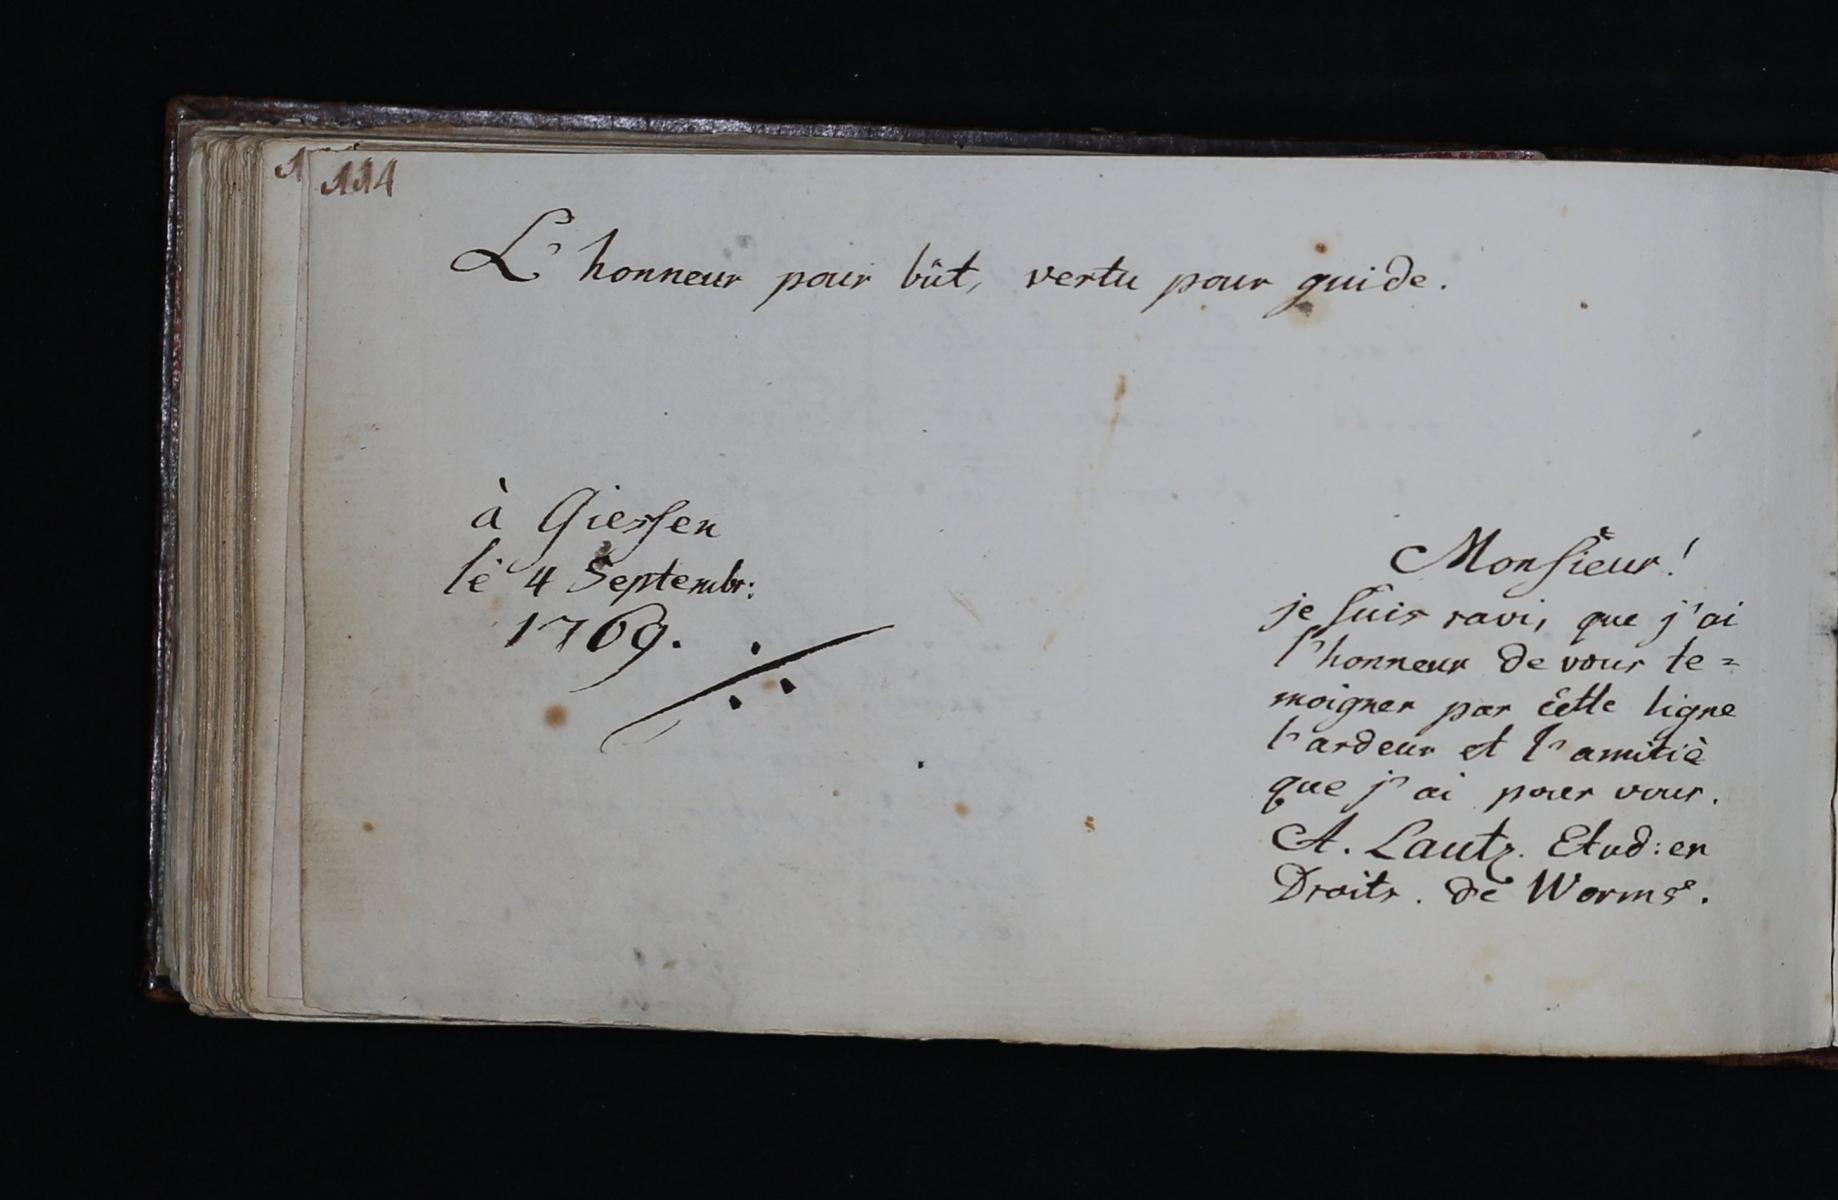 114
L'honneur pour bût, vertu pour guide.
à Giessen
lè 4 Septembr:
1769.
Monsieur!
je suis ravi, que j'ai
l'honneur de vous te=
moigner par cette ligne
l'ardeur et l'amitiè
que j'ai pour vous.
A. Lautz. Etud: en
Droits. de Worms.